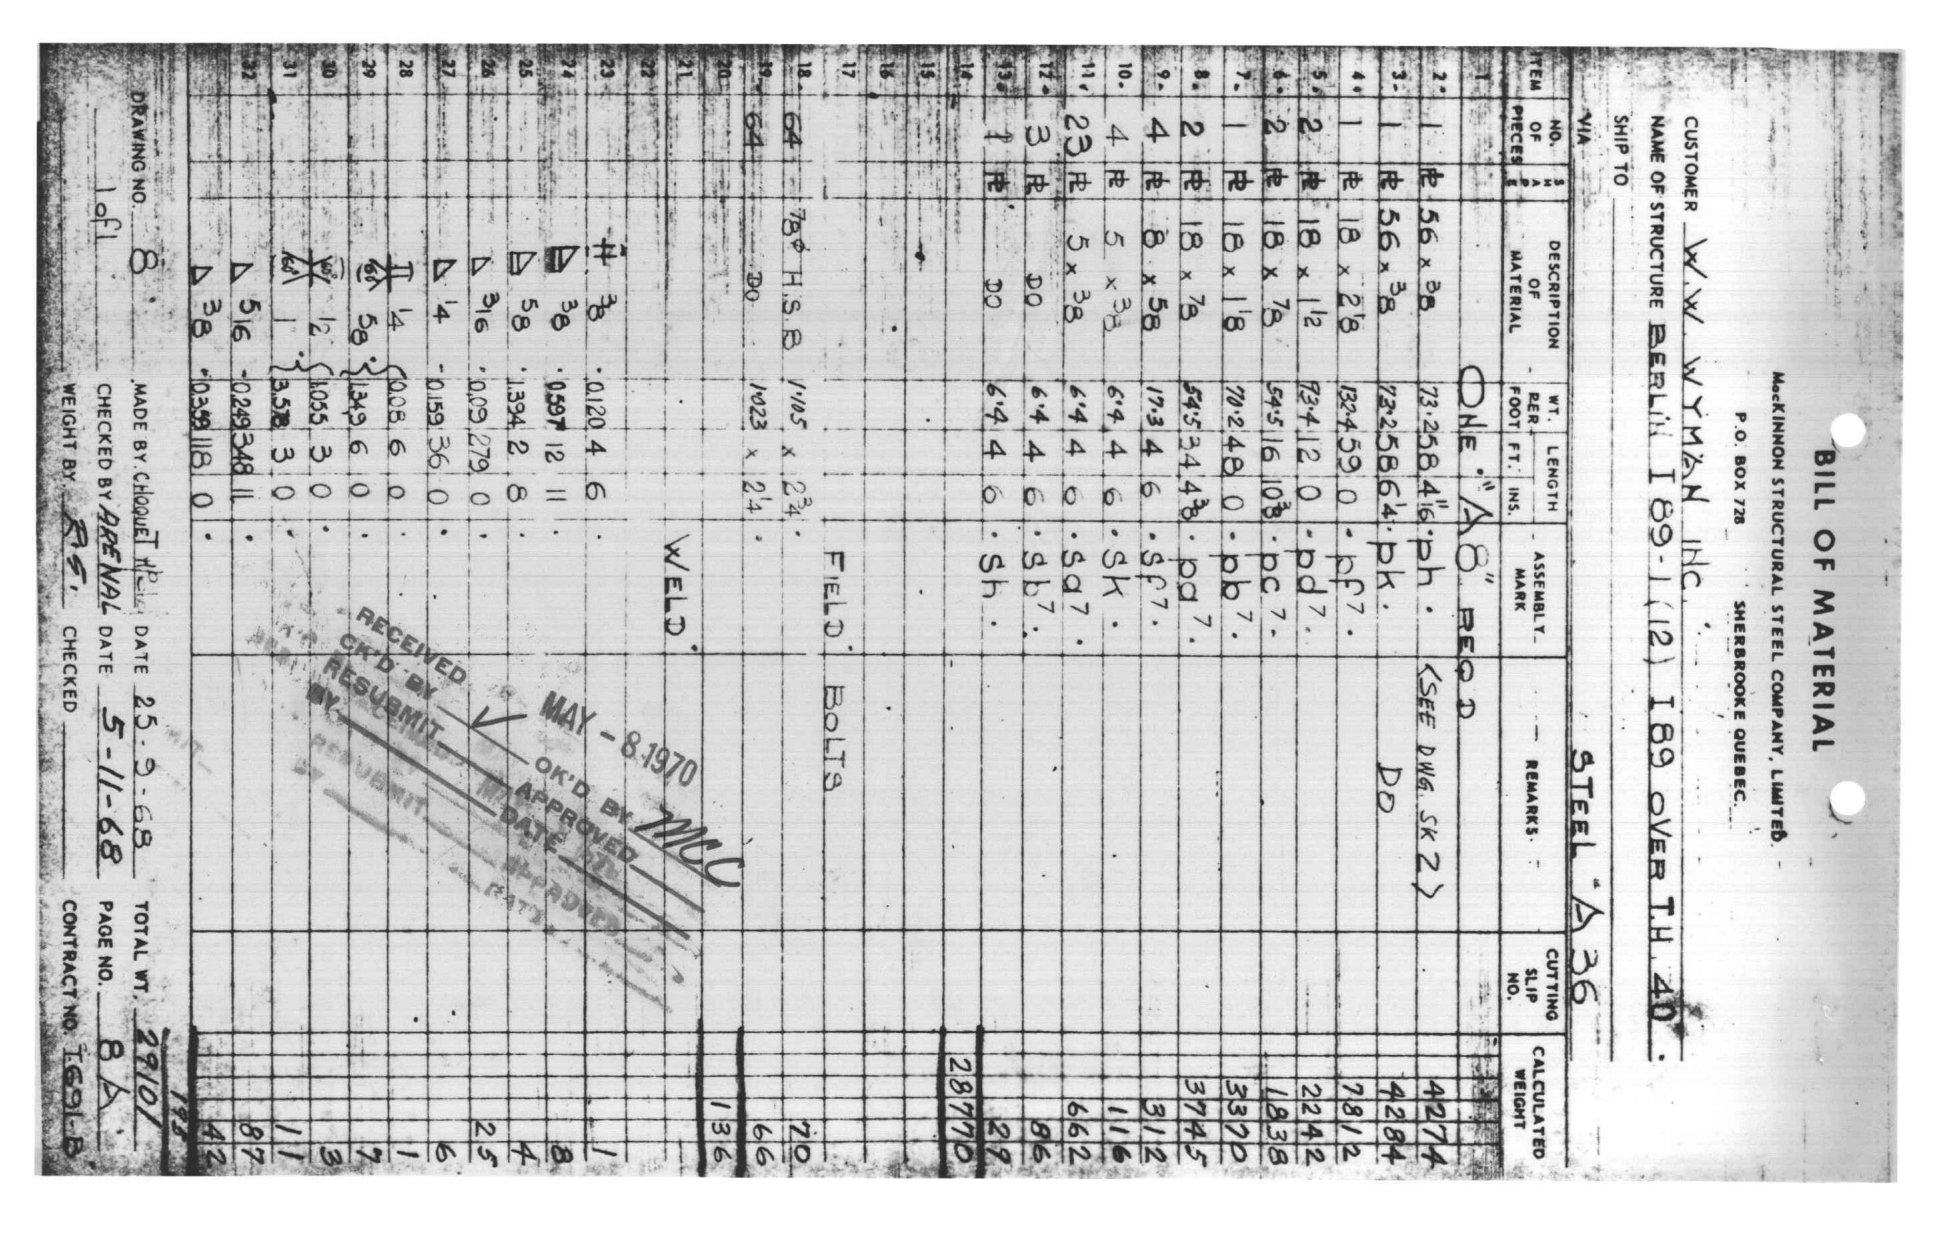 BILL OF MATERIAL
MacKINNON STRUCTURAL STEEL COMPANY, LIMITED.
P.O. BOX 728 SHERBROOKE QUEBEC.
CUSTOMER W.W. WYMAN INC.
NAME OF STRUCTURE BERLIN I 89-1(12) I 89 OVER T.H. 40.
SHIP TO
VIA STEEL "A 36
ITEM NO. OF PIECES SHAPE DESCRIPTION OF MATERIAL WT. PER FOOT LENGTH FT. INS. ASSEMBLY MARK REMARKS. CUTTING SLIP NO. CALCULATED WEIGHT
1 ONE "A8" REQD
2. 1 PL 56 x 3/8 73.2 58 4 11/16 ph. (SEE DWG. SK 2) 4274
3. 1 PL 56 x 3/8 73.2 58 6 1/4 pk. DO 4284
4. 1 PL 18 x 2 1/8 132.4 59 0 pf7. 7812
5. 2 PL 18 x 1 1/2 93.4 12 0 pd7. 2242
6. 2 PL 18 x 7/8 54.5 16 10 3/8 pc7. 1838
7. 1 PL 18 x 1 1/8 70.2 48 0 pb7. 3370
8. 2 PL 18 x 7/8 54.5 34 4 3/8 pa7. 3745
9. 4 PL 8 x 5/8 17.3 4 6 Sf7. 312
10. 4 PL 5 x 3/8 6.4 4 6 Sk. 116
11. 23 PL 5 x 3/8 6.4 4 6 Sa7. 662
12. 3 PL DO 6.4 4 6 Sb7. 86
13. 1 PL DO 6.4 4 6 Sh. 29
14 28770
15
16
17 FIELD BOLTS
18. 64 7/8ø H.S.B 1.105 x 2 3/4 70
19. 64 DO 1.023 x 2 1/4 66
20 136
21 WELD.
22
23 3/8 0.120 4 6 1
24 3/8 0.597 12 11 8
25 5/8 1.394 2 8 4
26 3/16 0.09 279 0 25
27 1/4 0.159 36 0 6
28 1/4 0.08 6 0 1
29 60° 5/8 1.349 6 0 7
30 60° 1/2 1.055 3 0 3
31 60° 1 3.578 3 0 11
32 5/16 0.249 348 11 87
3/8 0.359 118 0 42
195
RECEIVED MAY - 8 1970
OK'D BY OK'D BY MCC
RESUBMIT APPROVED
BY DATE
DRAWING NO. 8. MADE BY. CHOQUET DATE 25-9-68 TOTAL WT. 29101
1 of 1 CHECKED BY ARENAL DATE 5-11-68 PAGE NO. 8 A
WEIGHT BY R.S. CHECKED CONTRACT NO. T691-B